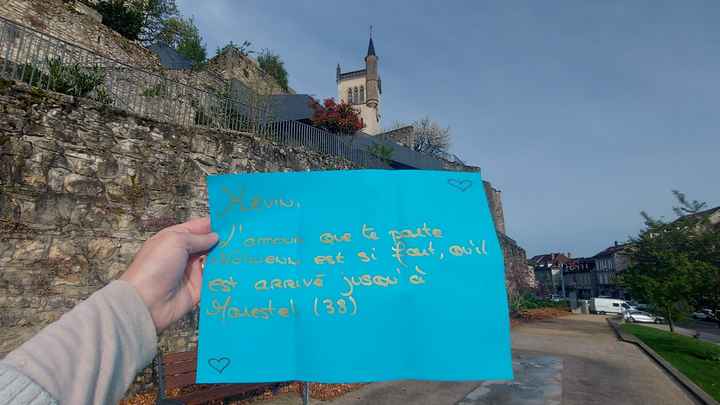 Kevin,
L'amour que te porte
est si fort, qu'il
est arrivé jusqu'à
Morestel (38)